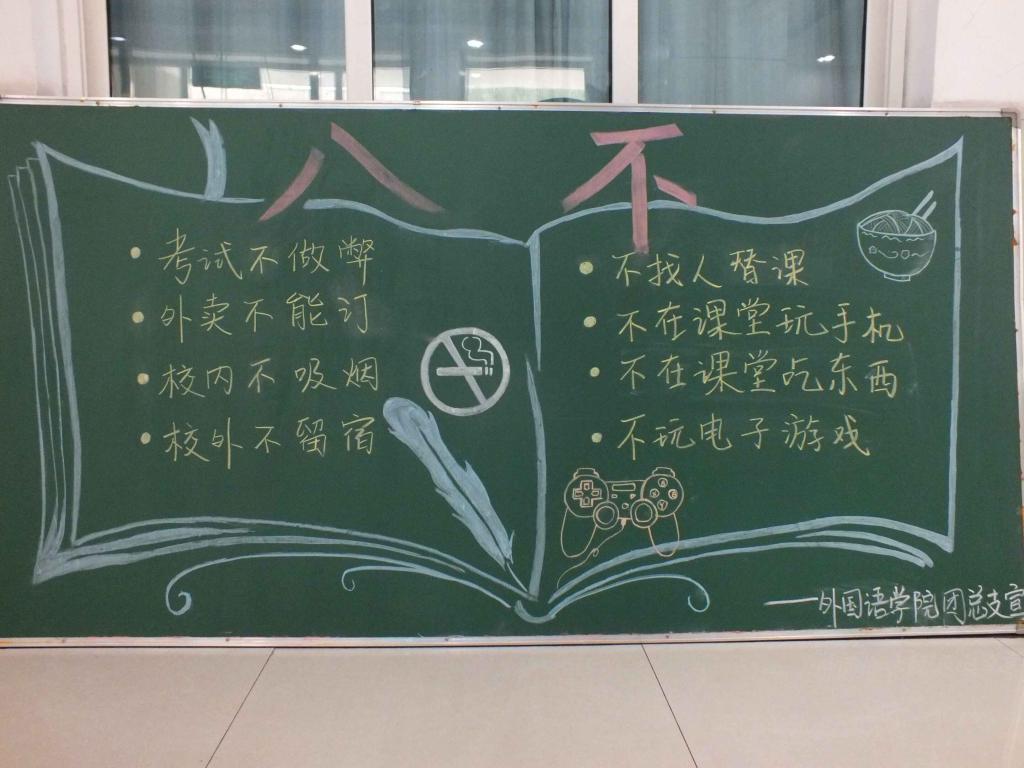 八不
考试不做弊
外卖不能订
校内不吸烟
校外不留宿
不找人替课
不在课堂玩手机
不在课堂吃东西
不玩电子游戏
——外国语学院团总支宣